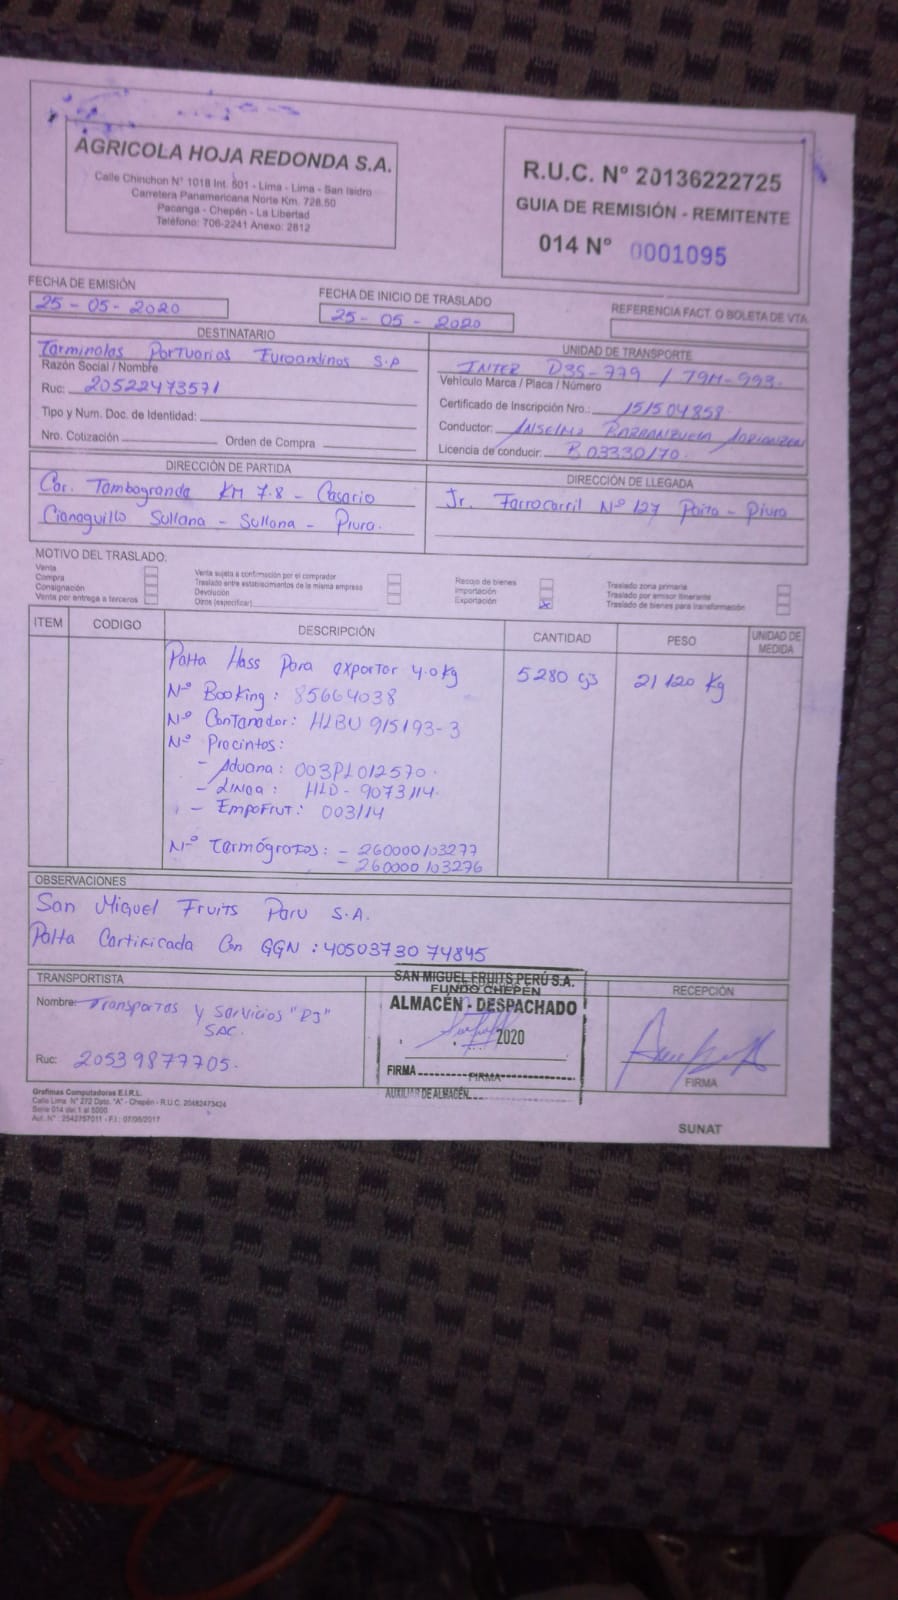 AGRICOLA HOJA REDONDA S.A.
Calle Chinchon N° 1018 Int. 501 - Lima - Lima - San Isidro
Carretera Panamericana Norte Km. 728.50
Pacanga - Chepén - La Libertad
Teléfono: 706-2241 Anexo: 2812
R.U.C. N° 20136222725
GUIA DE REMISIÓN - REMITENTE
014 N° 0001095
FECHA DE EMISIÓN
25-05-2020
FECHA DE INICIO DE TRASLADO
25-05-2020
REFERENCIA FACT. O BOLETA DE VTA.
DESTINATARIO
Terminales Portuarios Euroandinos S.A
Razón Social / Nombre
Ruc: 20522473571
Tipo y Num. Doc. de Identidad:
Nro. Cotización Orden de Compra
UNIDAD DE TRANSPORTE
INTER D3S-779 / T9M-993.
Vehículo Marca / Placa / Número
Certificado de Inscripción Nro.: 151504858.
Conductor: Anselmo
Licencia de conducir: B03330170.
DIRECCIÓN DE PARTIDA
Car. Tambogrande KM 7.8 - Caserio
Cieneguillo Sullana - Sullana - Piura.
DIRECCIÓN DE LLEGADA
Jr. Ferrocarril N° 127 Paita - Piura
MOTIVO DEL TRASLADO:
Venta
Compra
Consignación
Venta por entrega a terceros
Venta sujeta a confirmación por el comprador
Traslado entre establecimientos de la misma empresa
Devolución
Otros (especificar)
Recojo de bienes
Importación
Exportación X
Traslado zona primaria
Traslado por emisor itinerante
Traslado de bienes para transformación
ITEM CODIGO DESCRIPCIÓN CANTIDAD PESO UNIDAD DE MEDIDA
Palta Hass Para exportar 4.0kg 5280 cjs 21120 Kg
N° Booking: 85664038
N° Contenedor: HLBU 915193-3
N° Precintos:
- Aduana: 003PL012570.
- Linea: HLD-9073114.
- Empafrut: 003114
N° Termógrafos: - 260000103277
- 260000103276
OBSERVACIONES
San Miguel Fruits Peru S.A.
Palta Certificada Con GGN: 4050373074845
TRANSPORTISTA
Nombre: Transportes y Servicios "DJ"
SAC.
Ruc: 20539877705.
SAN MIGUEL FRUITS PERÚ S.A.
FUNDO CHEPÉN
ALMACÉN - DESPACHADO
2020
FIRMA
FIRMA
AUXILIAR DE ALMACÉN
RECEPCIÓN
FIRMA
Grafimas Computadoras E.I.R.L.
Calle Lima N° 272 Dpto. "A" - Chepén - R.U.C. 20482473424
Serie 014 del 1 al 5000
Aut. N° : 2542757011 - F.I.: 07/06/2017
SUNAT